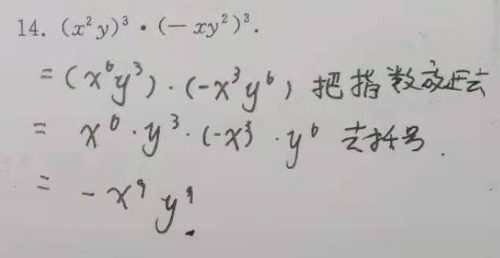 14. (x²y)³·(-xy²)³.
= (x⁶y³)·(-x³y⁶) 把指数放进去
= x⁶·y³·(-x³)·y⁶ 去括号.
= -x⁹y⁹.